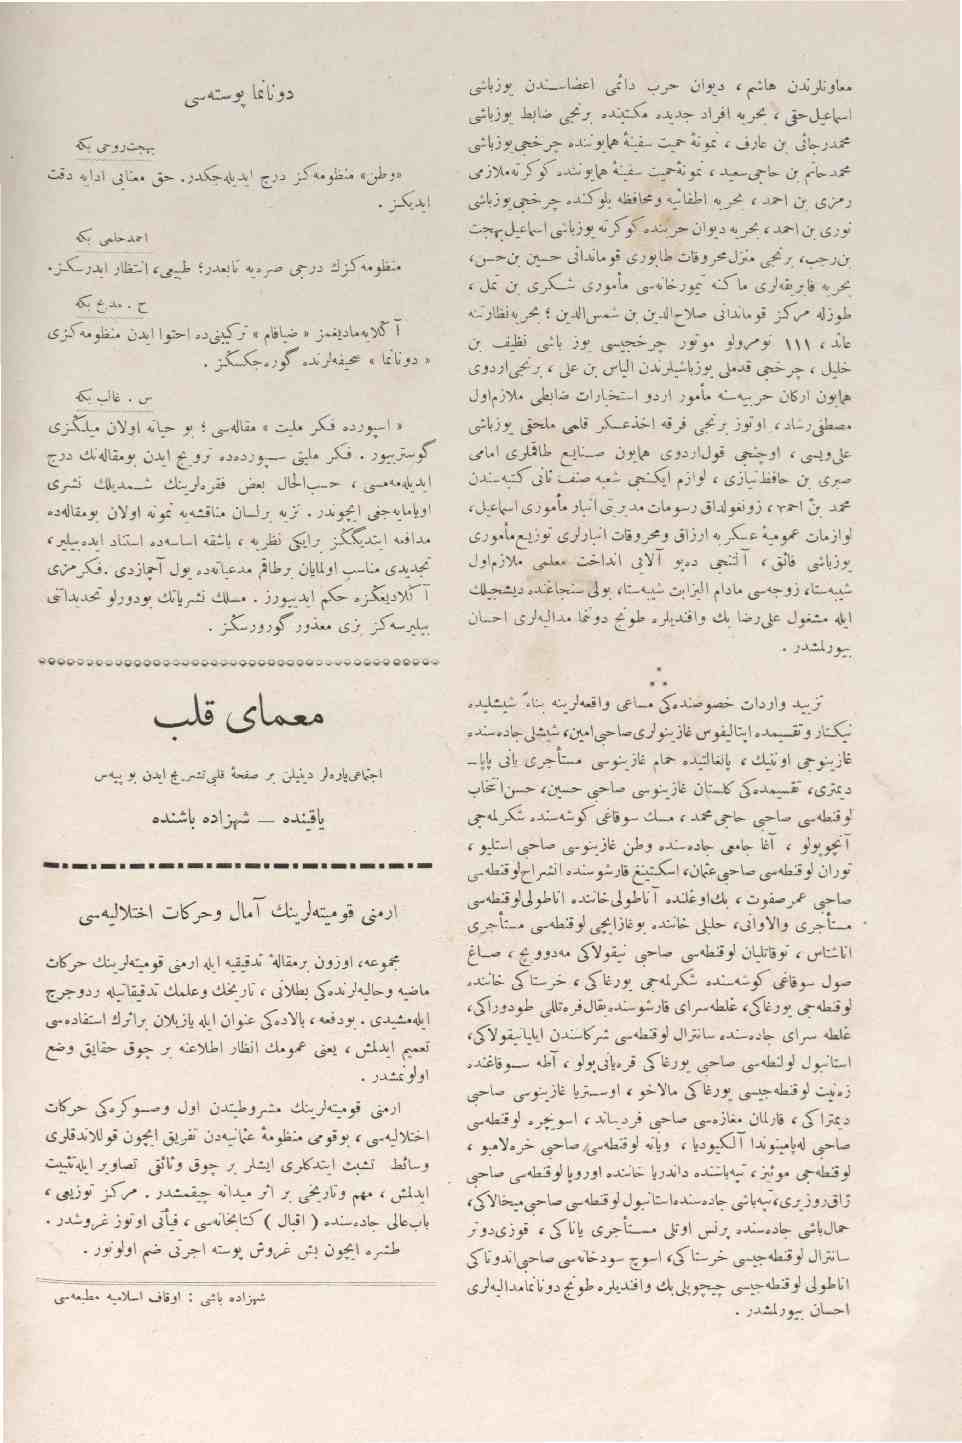 معاونلرندن هاشم ، ديوان حرب دائمی اعضاسـندن يوزباشی
اسماعيل حقی ، بحريه افراد جديده مكتبنده برنجی ضابط يوزباشی
محمدرجائی بن عارف ، نمونهٔ حميت سفينهٔ همايوننده چرخجی يوزباشی
محمدحاتم بن حاجی سعيد ، نمونهٔ حميت سفينهٔ همايوننده كوكرته ملازمی
رمزی بن احمد ، بحريه اطفائيه ومحافظه بلوكنده چرخجی يوزباشی
نوری بن احمد ، بحريه ديوان حربنده كوكرته يوزباشی اسماعيل بهجت
بن رجب ، برنجی منزل محروقات طابوری قوماندانی حسين بن حسن ،
بحريه فابريقه‌لری ماكنه تيمورخانه‌سی مأموری شكری بن
طوزله مركز قوماندانی صلاح‌الدين بن شمس‌الدين ؛ بحريه نظارتنه
عائد ، ١١١ نومرولو موتور چرخجيسی يوز باشی نظيف بن
خليل ، چرخجی قدملی يوزباشيلرندن الياس بن علی ، برنجی اردوی
همايون اركان حربيه‌سنه مأمور اردو استخبارات ضابطی ملازم اول
مصطفی رشاد ، اوتوز برنجی فرقه اخذعسكر قلمی ملحقی يوزباشی
علی ويسی ، اوچنجی قول‌اردوی همايون صنايع طاقملری امامی
صبری بن حافظ نيازی ، لوازم ايكنجی شعبه صنف ثانی كتبه‌سندن
محمد بن احمد ، زونغولداق رسومات مديريتی انبار مأموری اسماعيل ،
لوازمات عموميهٔ عسكريه ارزاق ومحروقات انبارلری توزيع مأموری
يوزباشی فائق ، آلتنجی دپو آلايی انداخت معلمی ملازم اول
شيبه‌ستا ، زوجه‌سی مادام اليزابت شيبه‌ستا ، بولی سنجاغنده ديشجيلك
ايله مشغول علی رضا بك وافنديلره طونج دوننما مداليه‌لری احسان
بيورلمشدر .
*
* *
تزييد واردات خصوصنده‌كی مساعی واقعه‌لرينه بناءً شيشليده
نيكتار وتقسيمده ايتاليفوس غازينولری صاحبی امين ، شيشلی جاده‌سنده
غازينوجی اوننيك ، پانغالتيده حمام غازينوسی مستأجری يانی پاپا-
ديمتری ، تقسيمده‌كی كلستان غازينوسی صاحبی حسين ، حسن انتخاب
لوقنطه‌سی صاحبی حاجی محمد ، مسك سوقاغی كوشه‌سنده شكرلمه‌جی
آنجوپولو ، آغا جامعی جاده‌سنده وطن غازينوسی صاحبی استليو ،
توران لوقنطه‌سی صاحبی عثمان ، اسكتينغ قارشوسنده انشراح لوقنطه‌سی
صاحبی عمر صفوت ، بك‌اوغلنده آناطولی خاننده اناطولی لوقنطه‌سی
مستأجری والاوانی ، حلبلی خاننده بوغازايچی لوقنطه‌سی مستأجری
اناشتاس ، توقاتليان لوقنطه‌سی صاحبی نيقولاكی مه‌دوويچ ، صاغ
صول سوقاغی كوشه‌سنده شكرلمه‌جی يورغاكی ، خرستاكی خاننده
لوقنطه‌جی يورغاكی ، غلطه‌سرای قارشوسنده بقال فره‌تللی طودوراكی ،
غلطه سرای جاده‌سنده سانترال لوقنطه‌سی شركاسندن ايليانيقولاكی ،
استانبول لوقنطه‌سی صاحبی يورغاكی قره‌يانی‌پولو ، آطه سـوقاغنده
زه‌نيت لوقنطه‌جيسی يورغاكی مالاخو ، اوستريا غازينوسی صاحبی
ديمتراكی ، قارلمان مغازه‌سی صاحبی فرديناند ، اسويچره لوقنطه‌سی
صاحبی له‌پامينوندا آلكيوديا ، ويانه لوقنطه‌سی صاحبی خره‌لامبو ،
لوقنطه‌جی موئيز ، تپه‌باشنده داندريا خاننده اوروپا لوقنطه‌سی صاحبی
ژاق روزيری ، تپه‌باشی جاده‌سنده استانبول لوقنطه‌سی صاحبی ميخالاكی ،
حمال‌باشی جاده‌سنده پرنس اوتلی مستأجری ياناكی ، قوزی‌دوتر
سانترال لوقنطه‌جيسی خرستاكی ، اسوج سودخانه‌سی صاحبی اندوناكی
اناطولی لوقنطه‌جيسی چيچوپلی بك وافنديلره طونج دونانمامداليه‌لری
احسان بيورلمشدر .
دونانما پوسته‌سی
بهجت‌روحی بكه
«وطن» منظومه‌كز درج ايديله‌جكدر . حق معنايی ادايه دقت
ايديكز .
احمدحلمی بكه
منظومه‌كزك درجی صره‌يه تابعدر ؛ طبيعی ، انتظار ايدرسكز .
ح . مدحع بكه
آكلايه‌ماديغمز « ضيافام » تركيبنی‌ده احتوا ايدن منظومه‌كزی
« دونانما » صحيفه‌لرنده گوره‌جكسكز .
س . غالب بكه
« اسپورده فكر مليت » مقاله‌سی ؛ بو حياته اولان ميلكزی
گوستريپور . فكر مليتی سپورده‌ده ترويج ايدن بومقاله‌نك درج
ايديله‌مه‌سی ، حسب‌الحال بعض فقره‌لرينك شمديلك نشری
اويامايه‌جغی ايچوندر . نزيه برلسان مناقشه‌يه نمونه اولان بومقاله‌ده
مدافعه ايتديگكز برايكی نظريه ، باشقه اساسه‌ده استناد ايده‌بيلير ،
تجديدی مناسب اولمايان برطاقم مدعياته‌ده يول آچمازدی . فكرمزی
آكلاديغكزه حكم ايديیورز . مسلك نشرياتك بودورلو تحديداتنی
بيليرسه‌كز بزی معذور گورورسكز .
معمای قلب
اجتماعی ياره‌لر دينيلن بر صفحهٔ قلبی تشريح ايدن بو پيه‌س
ياقينده — شهزاده باشنده
ارمنی قوميته‌لرينك آمال وحركات اختلاليه‌سی
مجموعه ، اوزون برمقالهٔ تدقيقيه ايله ارمنی قوميته‌لرينك حركات
ماضيه وحاليه‌لرنده‌كی بطلانی ، تاريخك وعلمك تدقيقاتيله ردوجرح
ايله‌مشيدی . بودفعه ، بالاده‌كی عنوان ايله يازيلان براثرك استفاده‌سی
تعميم ايدلمش ، يعنی عمومك انظار اطلاعنه بر چوق حقايق وضع
اولونمشدر .
ارمنی قوميته‌لرينك مشروطيتدن اول وصوكره‌كی حركات
اختلاليه‌سی ، بوقومی منظومهٔ عثمانيه‌دن تفريق ايچون قوللاندقلری
وسائط تشبث ايتدكلری ايشلر بر چوق وثائقی تصاوير ايله تثبيت
ايدلمش ، مهم وتاريخی بر اثر ميدانه چيقمشدر . مركز توزيعی ،
باب‌عالی جاده‌سنده ( اقبال ) كتابخانه‌سی ، فيأتی اوتوز غروشدر .
طشره ايچون بش غروش پوسته اجرتی ضم اولونور .
شهزاده باشی : اوقاف اسلاميه مطبعه‌سی